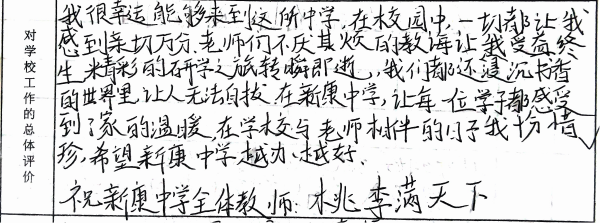 对学校工作的总体评价
我很幸运能够来到这所中学,在校园中,一切都让我
感到亲切万分,老师们不厌其烦的教诲让我受益终
生,精彩的研学之旅转瞬即逝,我们都还浸沉书香
的世界里,让人无法自拔,在新康中学,让每一位学子都感受
到了家的温暖,在学校与老师相伴的日子我十分惜
珍,希望新康中学越办越好.
祝新康中学全体教师:桃李满天下